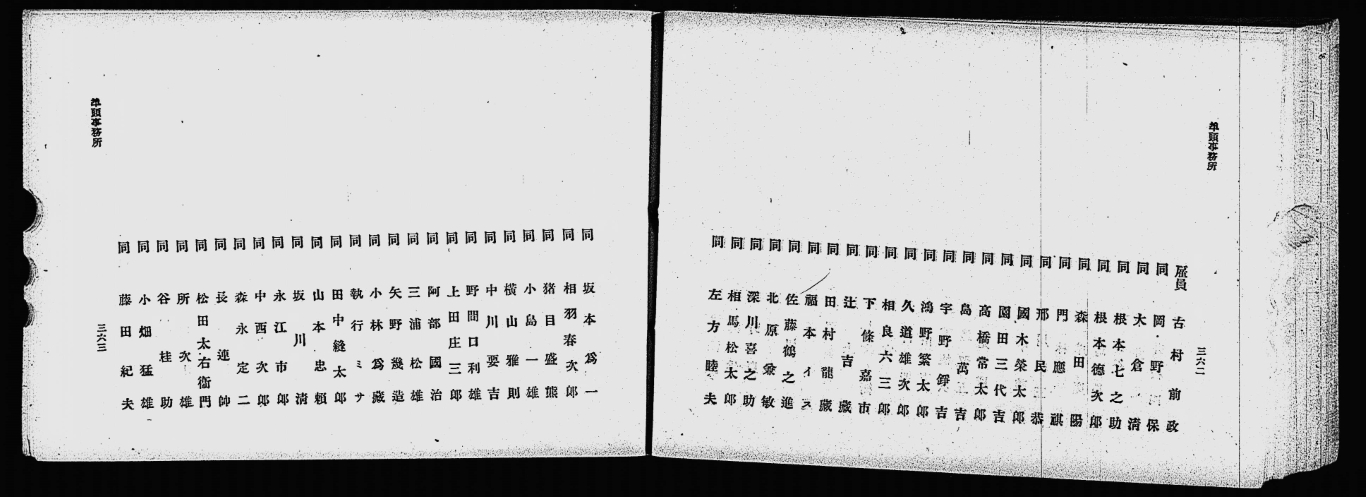 埠頭事務所
三六二
雇員 古村前政
同 岡野三保
同 大倉清
同 根本七之助
同 根本德次郎
同 森田陽
同 門應祺
同 邢民恭
同 國木榮太郎
同 園田三代吉
同 高橋常太郎
同 島萬二吉
同 宇野錚吉
同 鴻野繁太郎
同 久道雄次郎
同 相良六三郎
同 下條嘉市
同 辻吉藏
同 田村龍藏
同 福本イス
同 佐藤鶴之進
同 北原敏
同 深川喜之助
同 相馬松太郎
同 左方睦夫
同 坂本爲一
同 相羽春次郎
同 猪目盛熊
同 小島一雄
同 橫山雅則
同 中川要吉
同 野間口利雄
同 上田庄三郎
同 阿部國治
同 三浦松雄
同 矢野幾造
同 小林爲藏
同 執行ミサ
同 田中縫太郎
同 山本忠賴
同 坂川清
同 永江市郎
同 中西次郎
同 森永定二
同 長連帥
同 松田太右衞門
同 所次雄
同 谷桂助
同 小畑猛雄
同 藤田紀夫
埠頭事務所
三六三